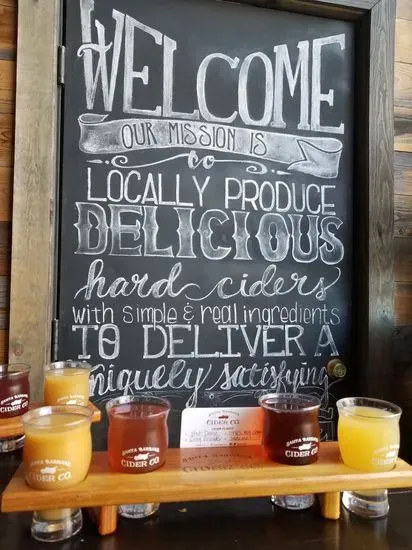 WELCOME
OUR MISSION IS
to
LOCALLY PRODUCE
DELICIOUS
hard ciders
with simple & real ingredients
TO DELIVER A
uniquely satisfying
SANTA BARBARA
CIDER CO.
SANTA BARBARA
CIDER CO.
SANTA BARBARA
CIDER CO.
SANTA BARBARA
CIDER CO.
SANTA BARBARA
CIDER CO.